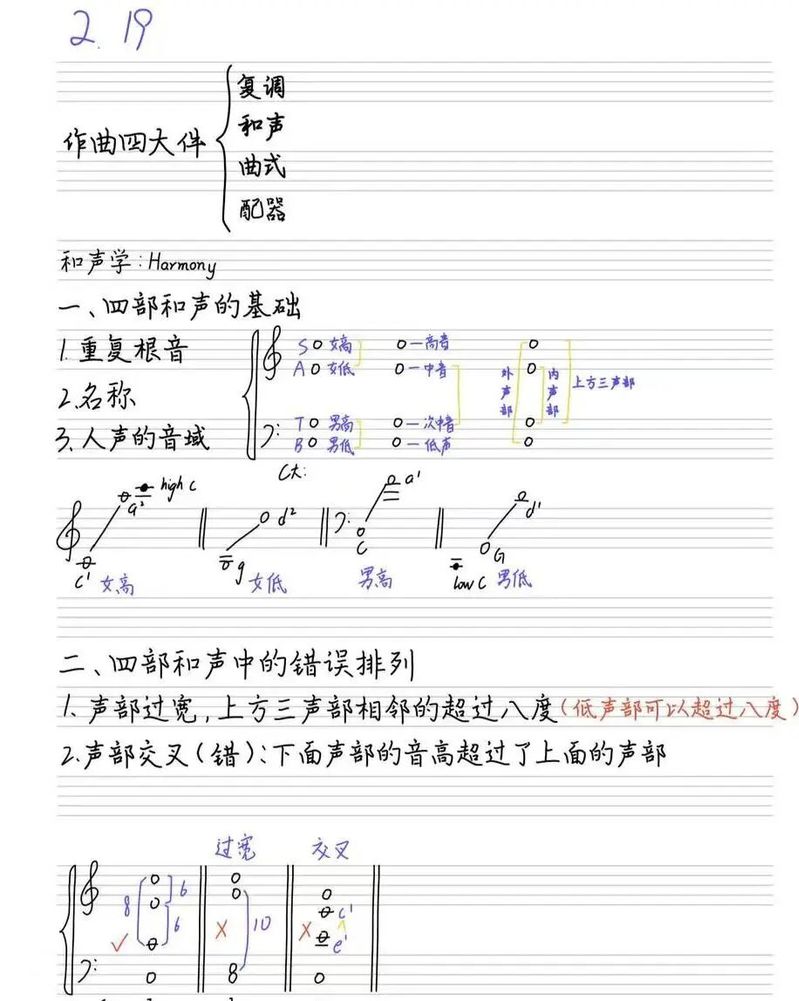 2.19
作曲四大件
复调
和声
曲式
配器
和声学：Harmony
一、四部和声的基础
1. 重复根音
2.名称
3.人声的音域
S 女高 一高音
A 女低 一中音
T 男高 一次中音
B 男低 一低声
外声部 内声部 上方三声部
C大：
c¹ a² high C 女高
g d² 女低
C a¹ 男高
low C G d¹ 男低
二、四部和声中的错误排列
1. 声部过宽，上方三声部相邻的超过八度（低声部可以超过八度）
2.声部交叉（错）：下面声部的音高超过了上面的声部
过宽 交叉
8 6 6 ✓
✗ 10 8
✗ c¹ e¹